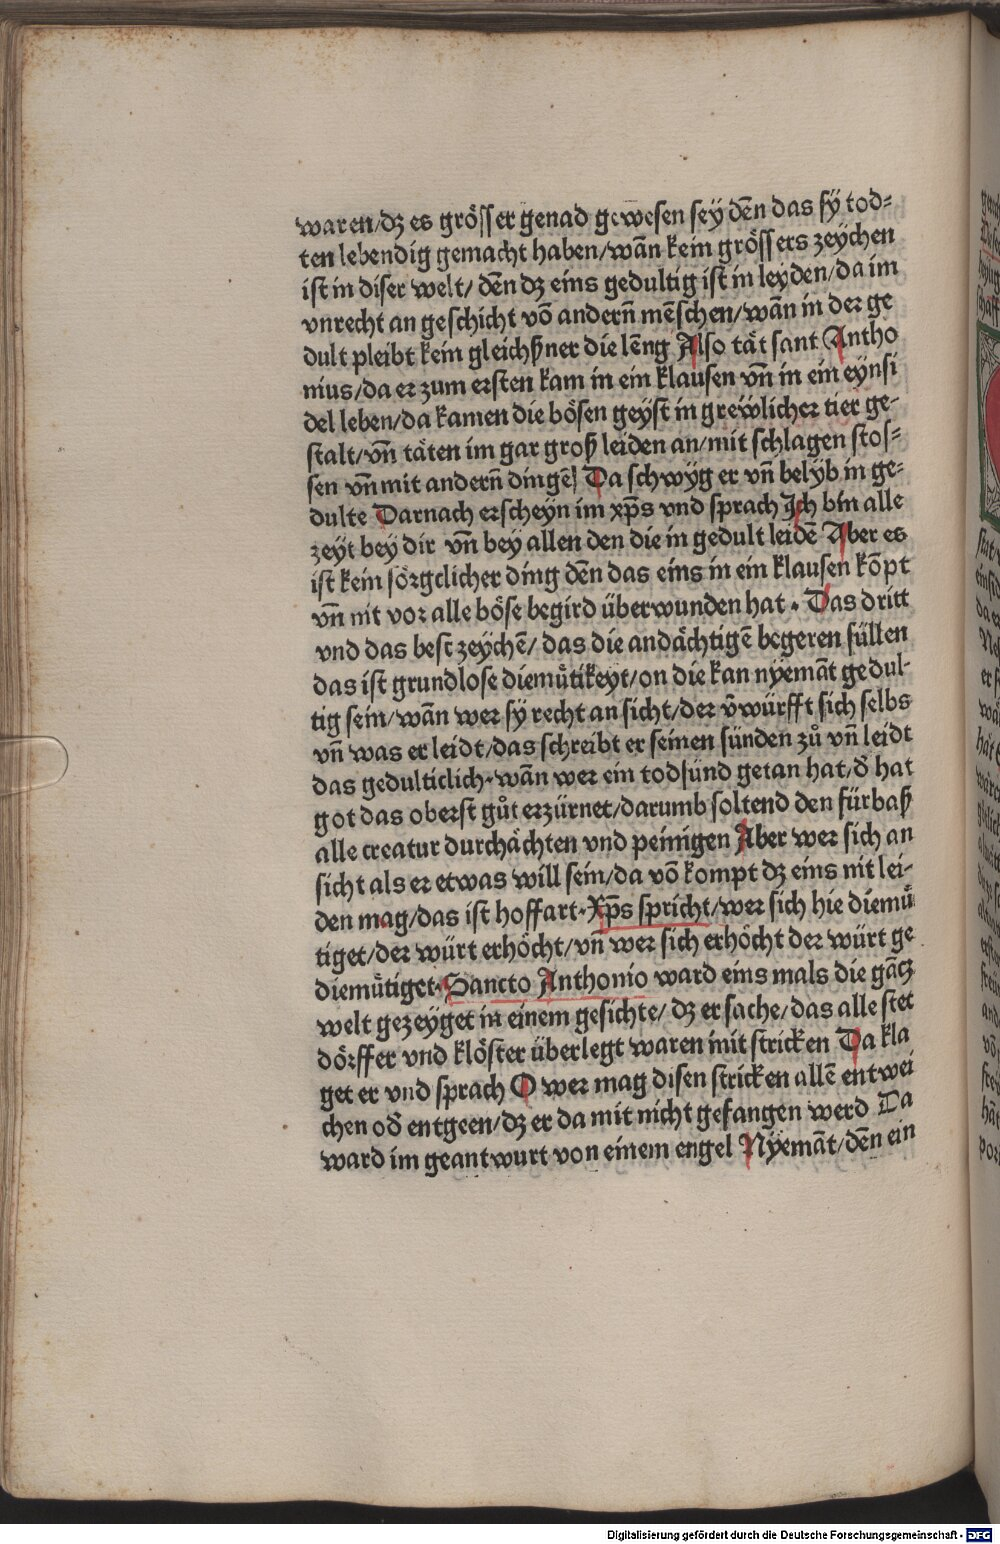 waren/dz es grösser genad gewesen sey deñ das sy tod⸗
ten lebendig gemacht haben/wañ kein grössers zeychen
ist in diser welt/ deñ dz eins gedultig ist in leyden/da im
vnrecht an geschicht võ anderñ mẽschen/wañ in der ge
dult pleibt kein gleichßner die lẽng Also tät sant Antho
nius/da er zum ersten kam in ein klausen vñ in ein eynsi
del leben/da kamen die bösen geyst in grewlicher tier ge⸗
stalt/vñ täten im gar groß leiden an/mit schlagen stos⸗
sen vñ mit anderñ dingẽ Da schwyg er vñ belyb in ge⸗
dulte Darnach erscheyn im xp̃s vnd sprach Ich bin alle
zeyt bey dir vñ bey allen den die in gedult leidẽ Aber es
ist kein sörgclicher ding deñ das eins in ein klausen kõpt
vñ nit vor alle böse begird überwunden hat . Das dritt
vnd das best zeychẽ/ das die andächtigẽ begeren füllen
das ist grundlose diemůtikeyt/on die kan nyemãt gedul⸗
tig sein/wañ wer sy recht an sicht/der v̄würfft sich selbs
vñ was er leidt/das schreibt er seinen sünden zů vñ leidt
das gedulticlich.wañ wer ein todsünd getan hat/d̄ hat
got das oberst gůt erzürnet/darumb soltend den fürbaß
alle creatur durchächten vnd peinigen Aber wer sich an
sicht als er etwas will sein/da võ kompt dz eins nit lei⸗
den mag/das ist hoffart.Xp̃s spricht/wer sich hie diemů
tiget/der würt erhöcht/vñ wer sich erhöcht der würt ge
diemůtiget.Sancto Anthonio ward eins mals die gãcz
welt gezeyget in einem gesichte/ dz er sache/das alle stet
dörffer vnd klöster überlegt waren mit stricken Da kla
get er vnd sprach O wer mag disen stricken allẽ entwei
chen od̄ entgeen/dz er da mit nicht gefangen werd Da
ward im geantwurt von einem engel Nyemãt/deñ ein
Digitalisierung gefördert durch die Deutsche Forschungsgemeinschaft - DFG